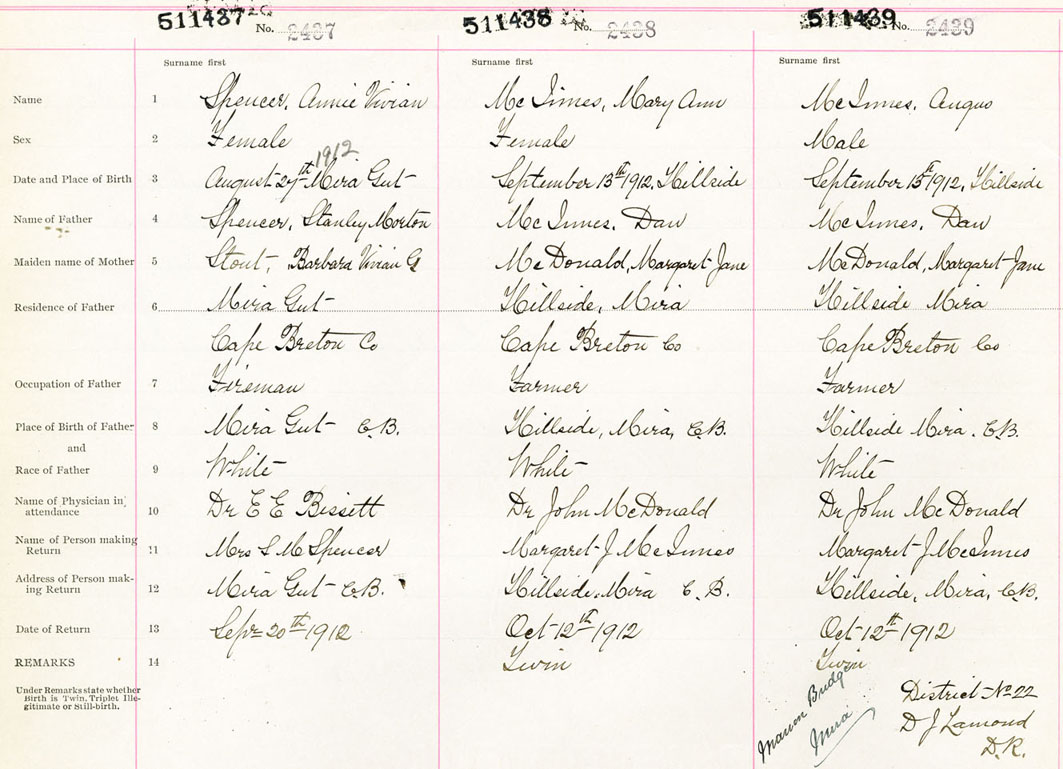 511437 511438 511439
No. 2437 No. 2438 No. 2439
Surname first Surname first Surname first
Name 1 Spencer, Annie Vivian Mc Innes, Mary Ann Mc Innes, Angus
Sex 2 Female Female Male
1912
Date and Place of Birth 3 August 27th Mira Gut September 13th 1912, Hillside September 15th 1912, Hillside
Name of Father 4 Spencer, Stanley Morton Mc Innes, Dan Mc Innes, Dan
Maiden name of Mother 5 Stout, Barbara Vivian G Mc Donald, Margaret Jane McDonald, Margaret Jane
Residence of Father 6 Mira Gut Hillside, Mira Hillside Mira
Cape Breton Co Cape Breton Co Cape Breton Co
Occupation of Father 7 Fireman Farmer Farmer
Place of Birth of Father 8 Mira Gut C.B. Hillside, Mira, C.B. Hillside Mira. C.B.
and
Race of Father 9 White White White
Name of Physician in
attendance 10 Dr E E Bissett Dr John McDonald Dr John McDonald
Name of Person making
Return 11 Mrs S M Spencer Margaret J McInnes Margaret J McInnes
Address of Person mak-
ing Return 12 Mira Gut C.B. Hillside, Mira C.B. Hillside, Mira, C.B.
Date of Return 13 Sept 20th 1912 Oct 12th 1912 Oct 12th 1912
REMARKS 14 Twin Twin
Under Remarks state whether
Birth is Twin, Triplet Ille-
gitimate or Still-birth.
Marion Bridge
Mira
District No 22
D J Lamond
D.R.